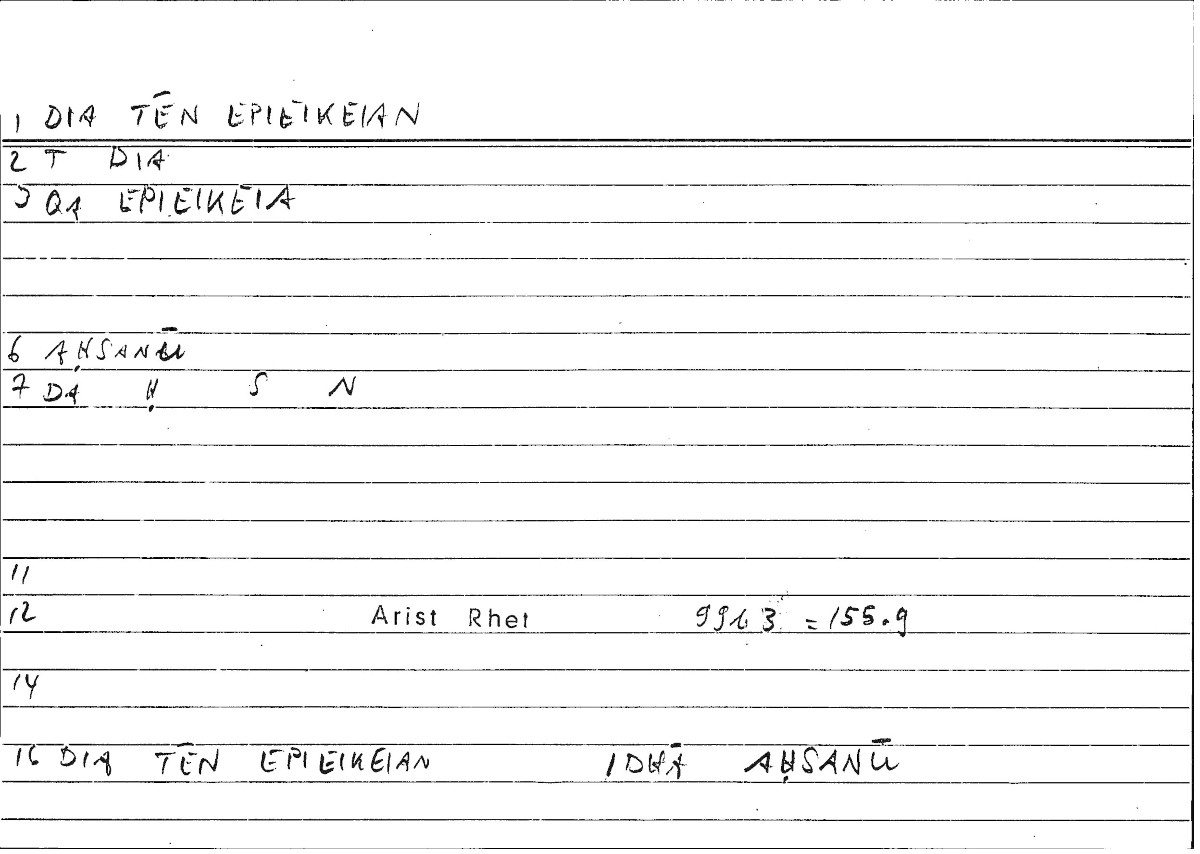 1 DIA TĒN EPIEIKEIAN
2 T DIA
3 QA EPIEIKEIA
6 AḤSANŪ
7 DA Ḥ S N
11
12 Arist Rhet 99b 3 = 155.9
14
16 DIA TĒN EPIEIKEIAN IDHĀ AḤSANŪ